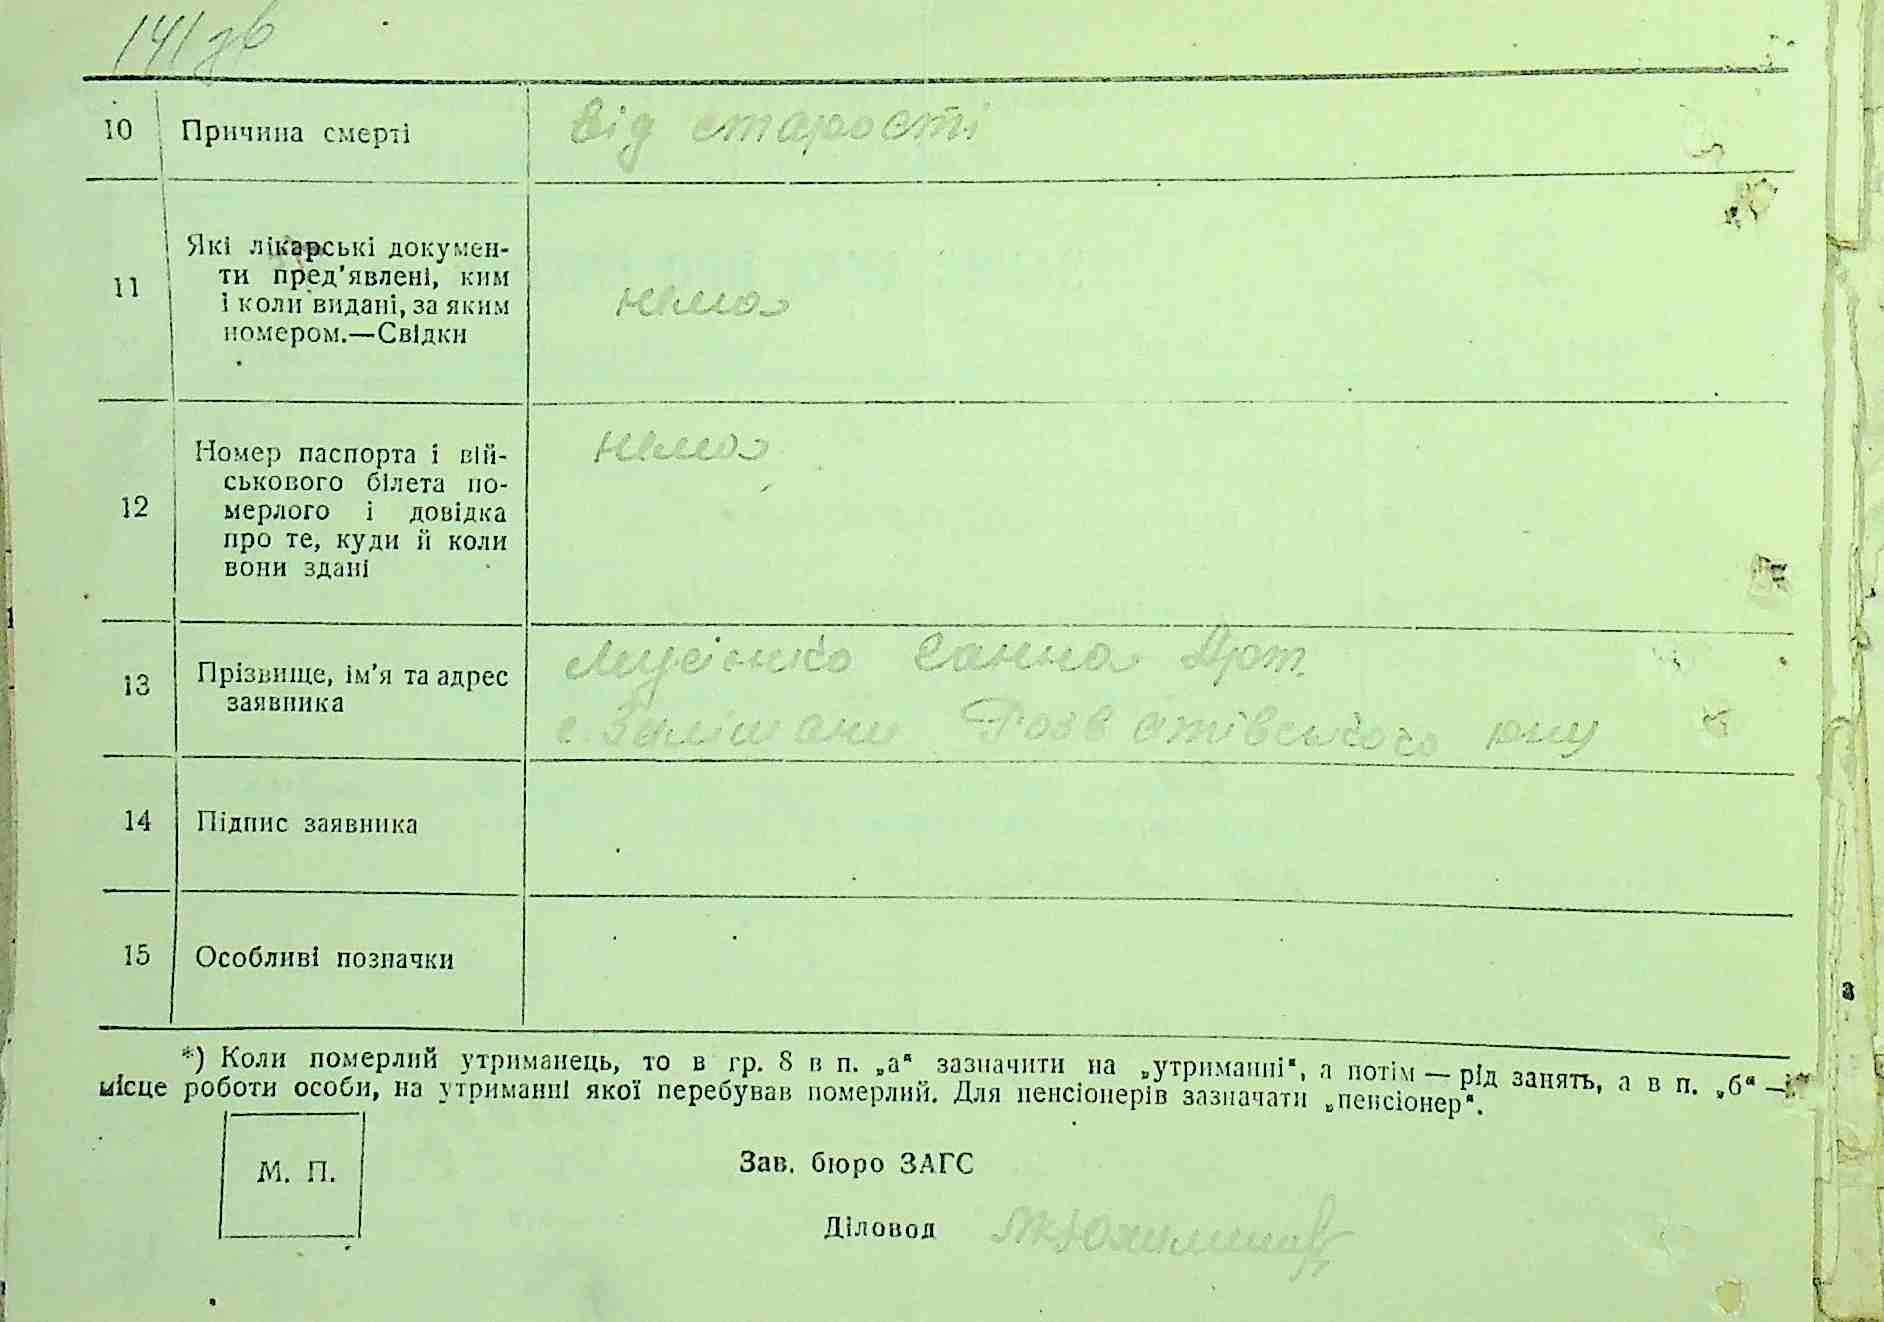 141 зв
10 Причина смерті від старості
11 Які лікарські докумен-
ти пред'явлені, ким
і коли видані, за яким
номером.—Свідки
нема
12 Номер паспорта і вій-
ськового білета по-
мерлого і довідка
про те, куди й коли
вони здані
нема
13 Прізвище, ім'я та адрес
заявника
Мусієнко Ганна
с. Залішани
14 Підпис заявника
15 Особливі позначки
*) Коли померлий утриманець, то в гр. 8 в п. „а“ зазначити на „утриманні“, а потім — рід занять, а в п. „б“ —
місце роботи особи, на утриманні якої перебував померлий. Для пенсіонерів зазначати „пенсіонер“.
М. П.
Зав. бюро ЗАГС
Діловод